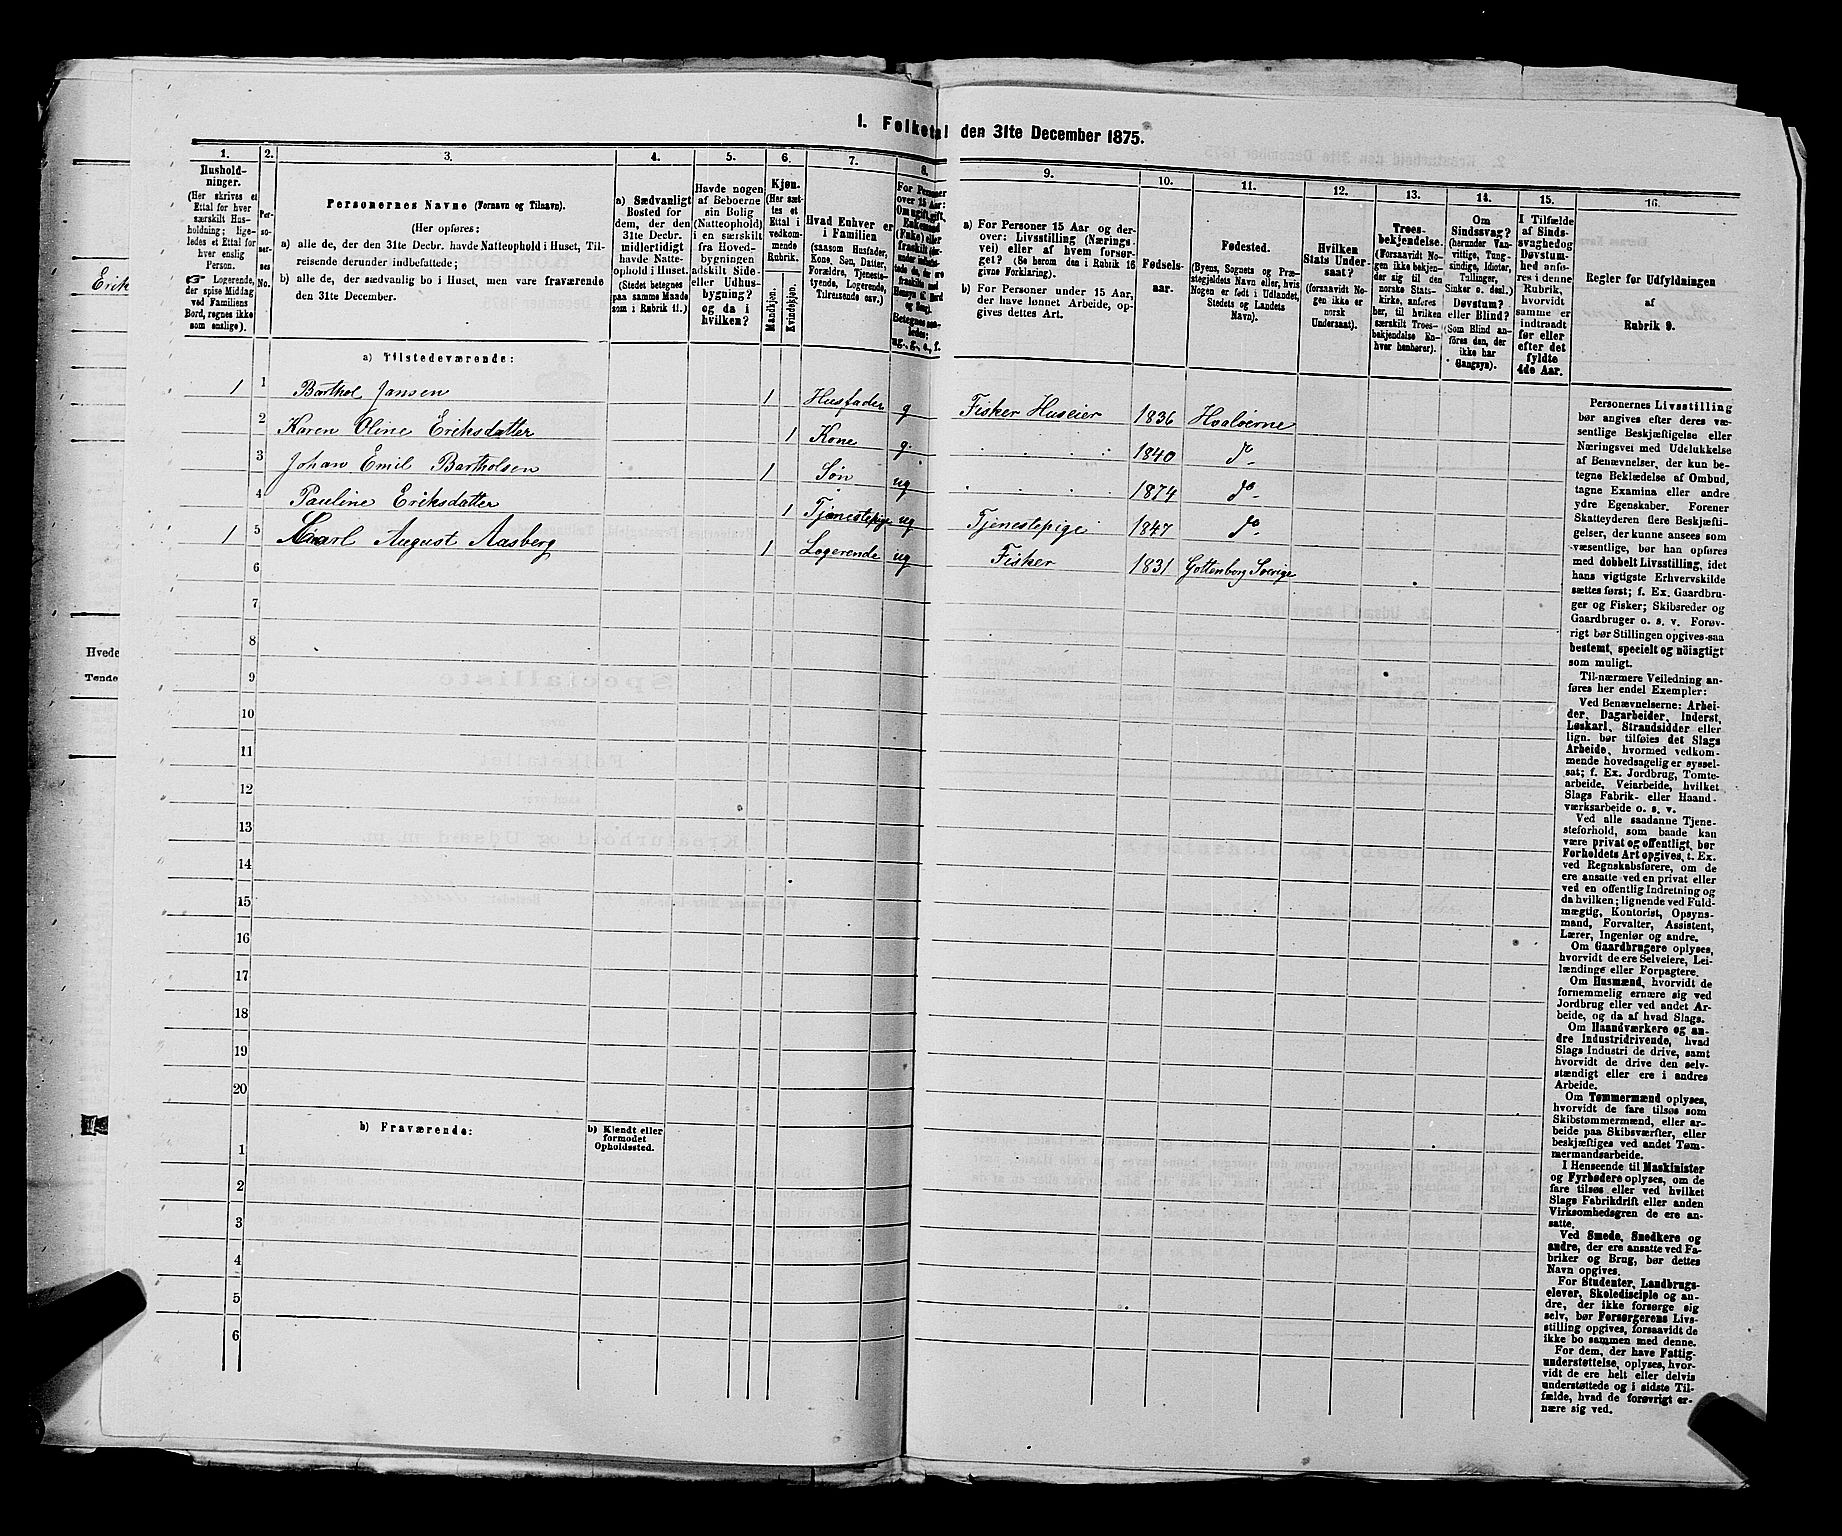 1. Folketal den 31te December 1875.
1. 2. 3. 4. 5. 6. 7. 8. 9. 10. 11. 12. 13. 14. 15. 16.
Hushold-
ninger.
(Her skrives et
Ettal for hver
særskilt Hus-
holdning; lige-
ledes et Ettal for
hver enslig
Person.
Logerende,
der spise Middag
ved Familiens
Bord, regnes ikke
som enslige).
Per-
so-
ner-
nes
No.
Personernes Navne (Fornavn og Tilnavn).
(Her opføres:
a) alle de, der den 31te Decbr. havde Natteophold i Huset, Til-
reisende derunder indbefattede;
b) alle de, der sædvanlig bo i Huset, men vare fraværende
den 31te December.
a) Sædvanligt
Bosted for
dem, der den
31te Decbr.
midlertidigt
havde Natte-
ophold i Huset.
(Stedet betegnes
paa samme Maade
som i Rubrik 11.)
Havde nogen
af Beboerne
sin Bolig
(Natteophold)
i en særskilt
fra Hoved-
bygningen
adskilt Side-
eller Udhus-
bygning?
og da i
hvilken?
Kjøn.
(Her sæt-
tes et
Ettal i
vedkom-
mende
Rubrik.
Mandkjøn.
Kvindekjøn.
Hvad Enhver er
i Familien
(saasom Husfader,
Kone, Søn, Datter,
Forældre, Tjeneste-
tyende, Logerende,
Tilreisende osv.)
For Personer
over 15 Aar:
Om ugift, gift,
Enkemand
(Enke) eller
fraskilt
ug., g., e., f.
a) For Personer 15 Aar og der-
over: Livsstilling (Nærings-
vei) eller af hvem forsør-
get? (Se herom den i Rubrik 16
givne Forklaring).
b) For Personer under 15 Aar,
der have lønnet Arbeide, op-
gives dettes Art.
Fødsels-
aar.
Fødested.
(Byens, Sognets og Præ-
stegjeldets Navn eller, hvis
Nogen er født i Udlandet,
Stedets og Landets
Navn).
Hvilken
Stats Under-
saat?
(forsaavidt No-
gen ikke er
norsk
Undersaat).
Troes-
bekjendelse.
(Forsaavidt No-
gen ikke bekjen-
der sig til den
norske Stats-
kirke, anføres
her, til hvilken
særskilt Troes-
bekjendelse En-
hver henhører).
Om
Sindssvag?
(herunder Van-
vittige, Tung-
sindige, Idioter,
Tullinger,
Sinker o. desl.)
Døvstum?
eller Blind?
(Som Blind an-
føres den, der
ikke har
Gangsyn).
I Tilfælde
af Sinds-
svaghed og
Døvstum-
hed anfø-
res i denne
Rubrik,
hvorvidt
samme er
indtraadt
før eller
efter det
fyldte
4de Aar.
Regler for Udfyldningen
af
Rubrik 9.
a) Tilstedeværende:
1 1 Barthol Jansen 1 Husfader g Fisker Huseier 1836 Hvaløerne
2 Karen Oline Eriksdatter 1 Kone g 1840 do
3 Johan Emil Bartholsen 1 Søn ug 1874 do
4 Pauline Eriksdatter 1 Tjenestepige ug Tjenestepige 1847 do
1 5 Carl August Aasberg 1 Logerende ug Fisker 1831 Gottenborg Sverige
6
7
8
9
10
11
12
13
14
15
16
17
18
19
20
b) Fraværende:
b) Kjendt eller
formodet
Opholdssted.
1
2
3
4
5
6
Personernes Livsstilling
bør angives efter deres væ-
sentlige Beskjæftigelse eller
Næringsvei med Udelukkelse
af Benævnelser, der kun be-
tegne Beklædelse af Ombud,
tagne Examina eller andre
ydre Egenskaber. Forener
Skatteyderen flere Beskjæfti-
gelser, der kunne ansees som
væsentlige, bør han opføres
med dobbelt Livsstilling, idet
hans vigtigste Erhvervskilde
sættes først; f. Ex. Gaardbru-
ger og Fisker; Skibsreder og
Gaardbruger o. s. v. Forøv-
rigt bør Stillingen opgives saa
bestemt, specielt og nöiagtigt
som muligt.
Til nærmere Veiledning an-
føres her endel Exempler:
Ved Benævnelserne: Arbei-
der, Dagarbeider, Inderst,
Løskarl, Strandsidder eller
lign. bør tilføies det Slags
Arbeide, hvormed vedkom-
mende hovedsagelig er syssel-
sat; f. Ex. Jordbrug, Tomte-
arbeide, Veiarbeide, hvilket
Slags Fabrik- eller Haand-
værksarbeide o. s. v.
Ved alle saadanne Tjene-
steforhold, som baade kan
være privat og offentligt, bør
Forholdets Art opgives, t. Ex.
ved Regnskabsførere, om de
ere ansatte ved en privat eller
ved en offentlig Indretning og
da hvilken; lignende ved Fuld-
mægtig, Kontorist, Opsyns-
mand, Forvalter, Assistent,
Lærer, Ingeniør og andre.
Om Gaardbrugere oplyses,
hvorvidt de ere Selveiere, Lei-
lændinge eller Forpagtere.
Om Husmænd, hvorvidt de
fornemmelig ernære sig ved
Jordbrug eller ved andet Ar-
beide, og da af hvad Slags.
Om Haandværkere og an-
dre Industridrivende, hvad
Slags Industri de drive, samt
hvorvidt de drive den selv-
stændigt eller ere i andres
Arbeide.
Om Tømmermænd oplyses,
hvorvidt de fare tilsøs som
Skibstømmermænd, eller ar-
beide paa Skibsværfter, eller
beskjæftiges ved andet Tøm-
mermandsarbeide.
I Henseende til Maskinister
og Fyrbødere oplyses, om de
fare tilsøs eller ved hvilket
Slags Fabrikdrift eller anden
Virksomhedsgren de ere an-
satte.
Ved Smede, Snedkere og
andre, der ere ansatte ved Fa-
briker og Brug, bør dettes
Navn opgives.
For Studenter, Landbrugs-
elever, Skoledisciple og an-
dre, der ikke forsørge sig
selv, bør Forsørgerens Livs-
stilling opgives, forsaavidt de
ikke bo sammen med denne.
For dem, der have Fattig-
understøttelse, oplyses, hvor-
vidt de ere helt eller delvis
understøttede og i sidste Til-
fælde, hvad de forøvrigt er-
nære sig ved.
Erik
Hvede
Tønde